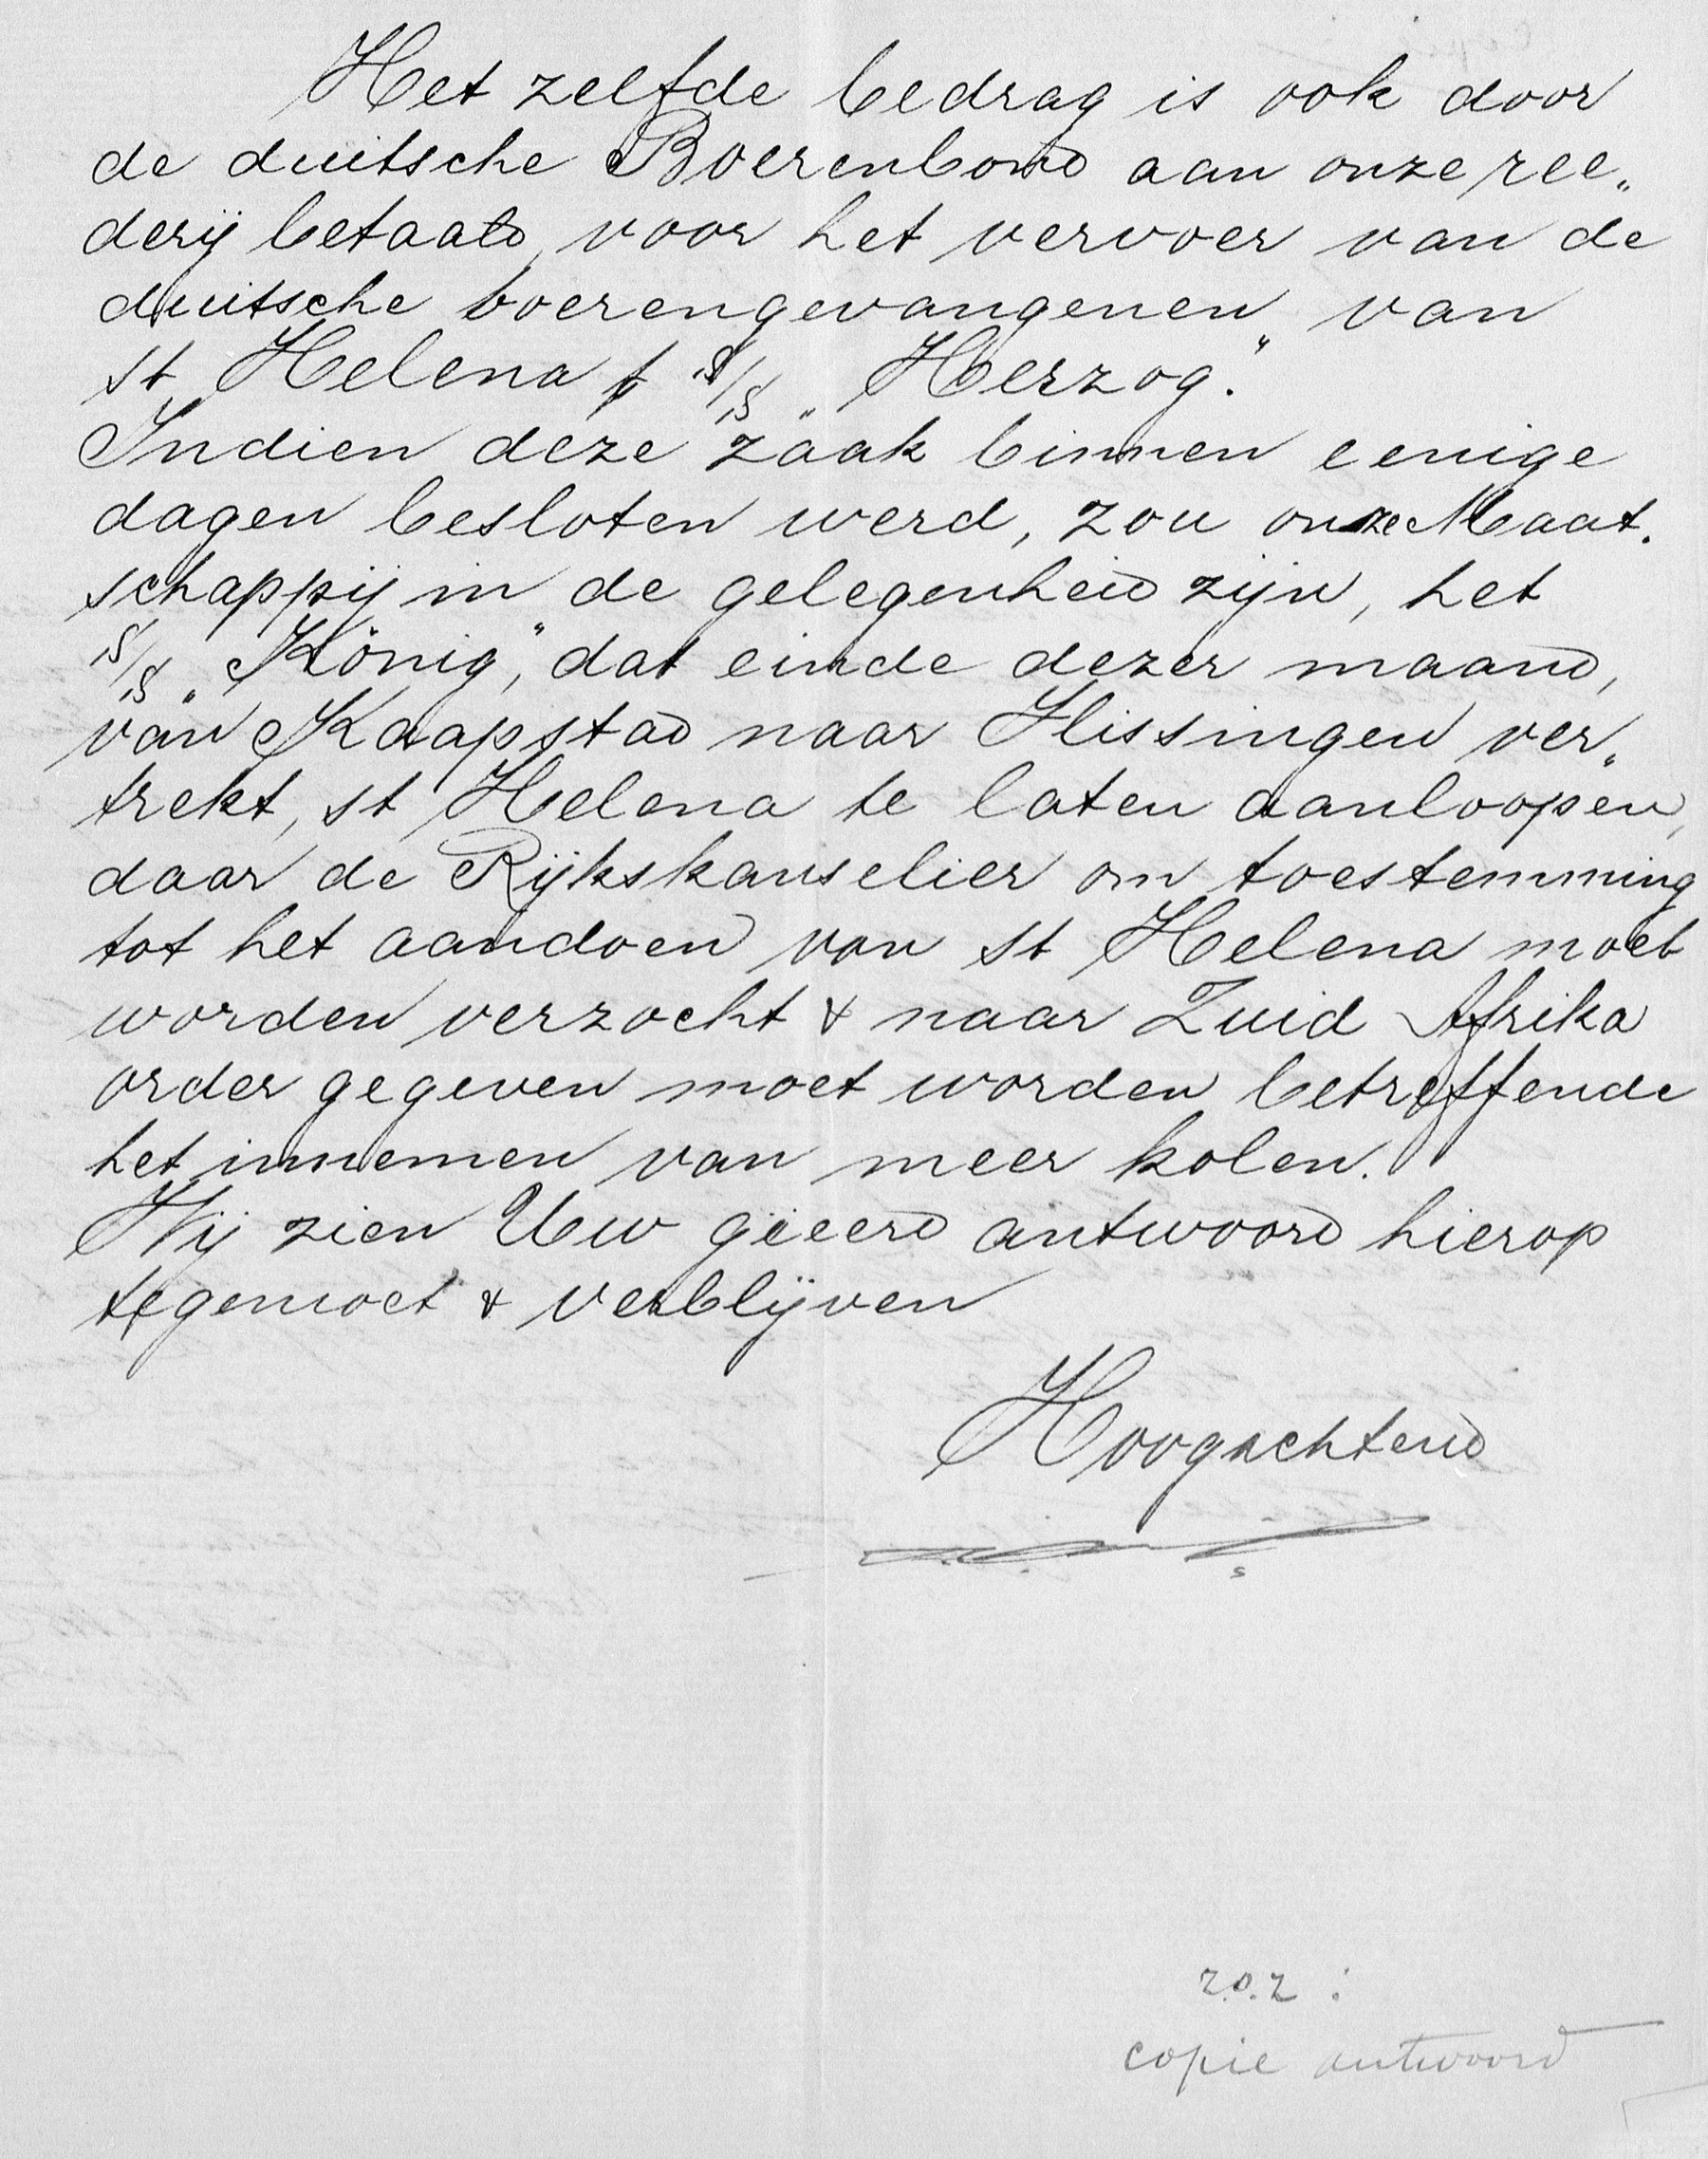 Het zelfde bedrag is ook door
de duitsche Boerenbond aan onze ree„
derij betaald, voor het vervoer van de
duitsche boerengevangenen van
st Helena p s/s „Herzog."
Indien deze zaak binnen eenige
dagen besloten werd, zou onze Maat.
schappij in de gelegenheid zijn, het
s/s „König", dat einde dezer maand,
van Kaapstad naar Vlissingen ver„
trekt, st Helena te laten aanloopen,
daar de Rijkskanselier om toestemming
tot het aandoen van st Helena moet
worden verzocht & naar Zuid Afrika
order gegeven moet worden betreffende
het innemen van meer kolen.
Wij zien Uw geëerd antwoord hierop
tegemoet & verblijven
Hoogachtend
z.o.z :
copie antwoord